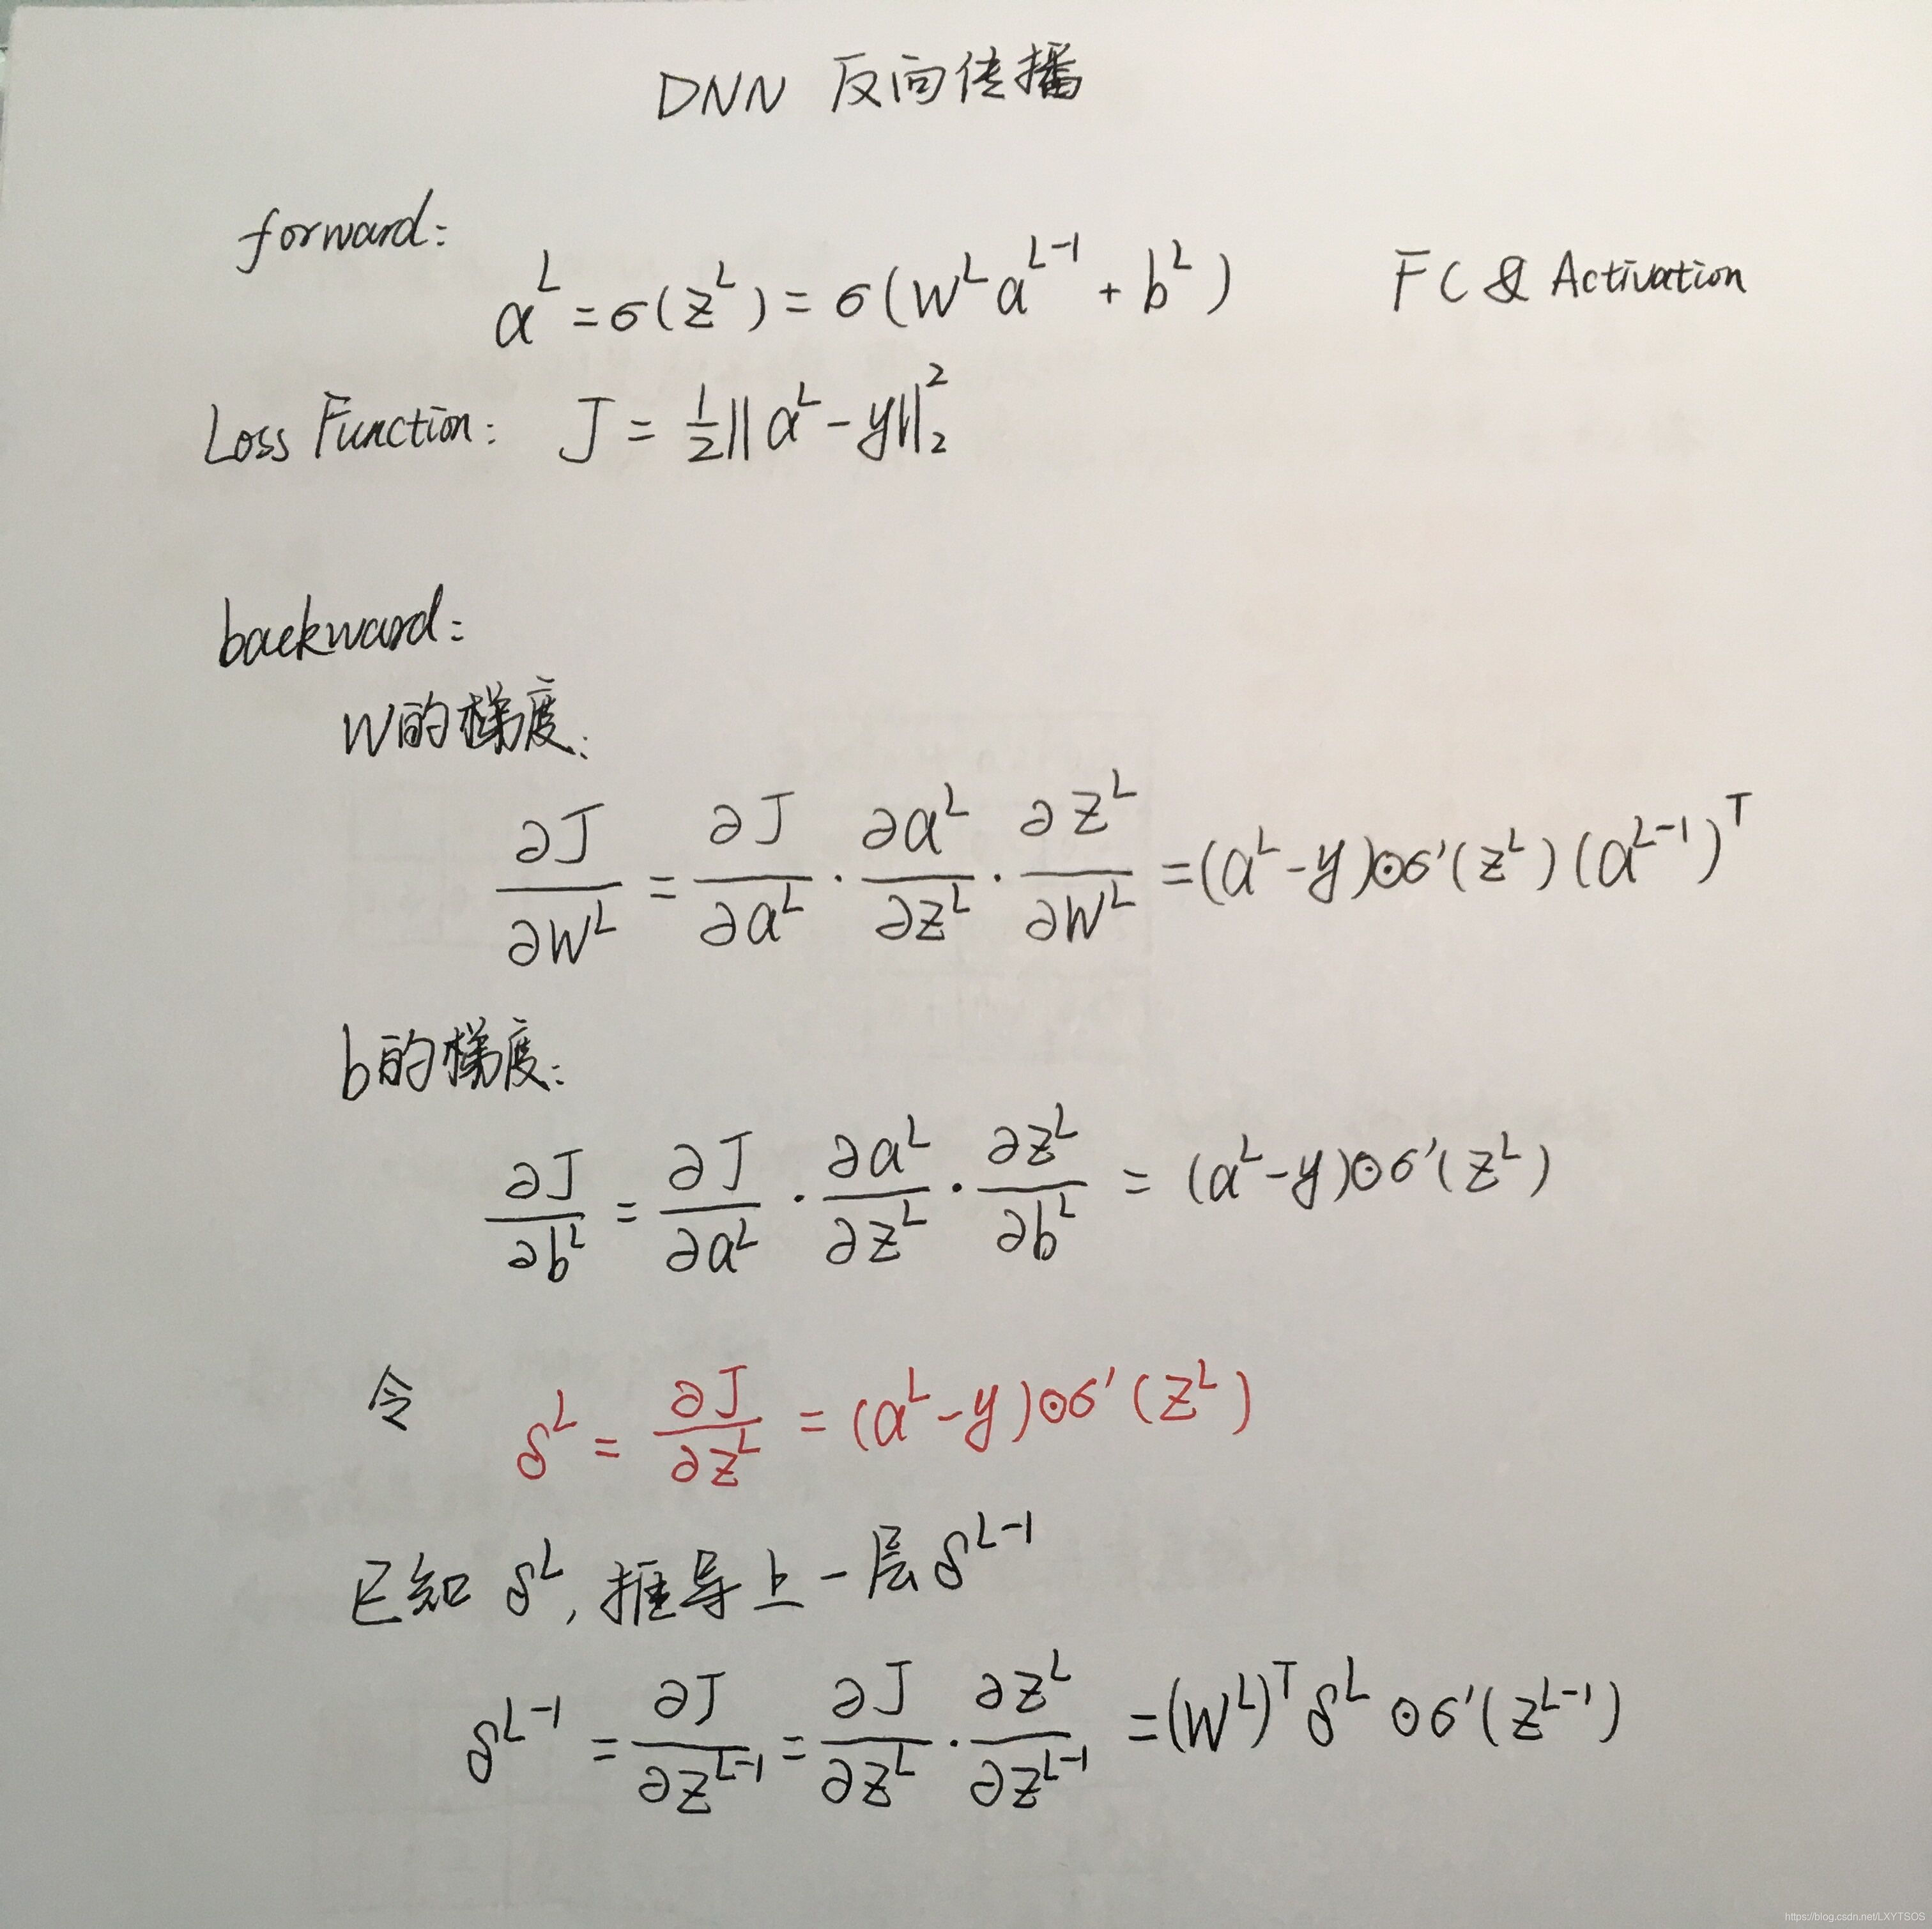 DNN 反向传播
forward:
a^L = σ(z^L) = σ(W^L a^{L-1} + b^L) FC & Activation
Loss Function: J = \frac{1}{2}||a^L - y||_2^2
backward:
W的梯度:
\frac{∂J}{∂W^L} = \frac{∂J}{∂a^L} · \frac{∂a^L}{∂z^L} · \frac{∂z^L}{∂W^L} = (a^L - y)⊙σ'(z^L)(a^{L-1})^T
b的梯度:
\frac{∂J}{∂b^L} = \frac{∂J}{∂a^L} · \frac{∂a^L}{∂z^L} · \frac{∂z^L}{∂b^L} = (a^L - y)⊙σ'(z^L)
令 δ^L = \frac{∂J}{∂z^L} = (a^L - y)⊙σ'(z^L)
已知 δ^L, 推导上一层 δ^{L-1}
δ^{L-1} = \frac{∂J}{∂z^{L-1}} = \frac{∂J}{∂z^L} · \frac{∂z^L}{∂z^{L-1}} = (W^L)^T δ^L ⊙σ'(z^{L-1})
https://blog.csdn.net/LXYTSOS